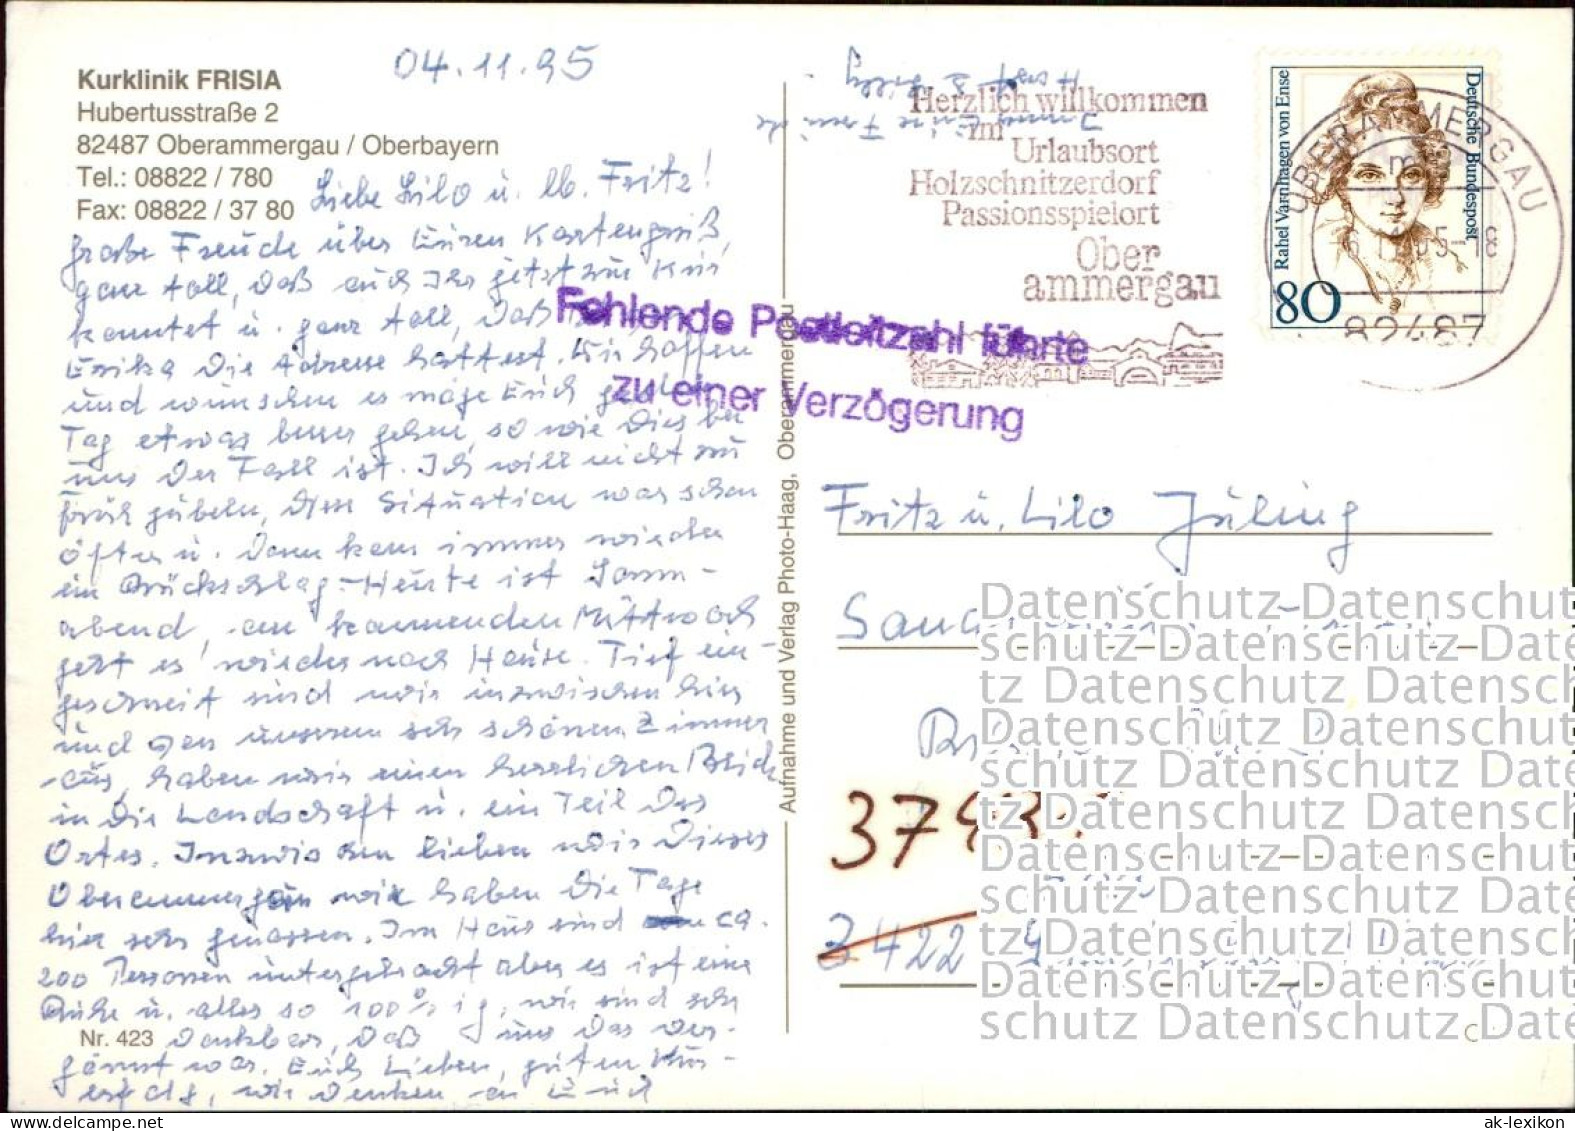 Kurklinik FRISIA
Hubertusstraße 2
82487 Oberammergau / Oberbayern
Tel.: 08822 / 780
Fax: 08822 / 37 80
04.11.95
Liebe Lilo u. lb. Fritz!
große Freude über Euren Kartengruß,
ganz toll, daß auch Ihr jetzt zur Kur
konntet u. ganz toll, daß
Erika die Adresse hattest. Wir hoffen
und wünschen es möge Euch jeden
Tag etwas besser gehen, so wie dies bei
uns der Fall ist. Ich will nicht zu
früh jubeln, diese Situation war schon
öfter u. dann kam immer wieder
ein Rückschlag - Heute ist Sonn-
abend, am kommenden Mittwoch
geht es wieder nach Hause. Tief ein-
geschneit sind wir inzwischen hier
und von unserem sehr schönen Zimmer
aus, haben wir einen herrlichen Blick
in die Landschaft u. ein Teil des
Ortes. Inzwischen lieben wir dieses
Oberammergau wir haben die Tage
hier sehr genossen. Im Haus sind ca.
200 Personen untergebracht aber es ist eine
Ruhe u. alles so 100%ig, wir sind sehr
dankbar, daß uns das ver-
gönnt war. Euch Lieben, guten Kur-
erfolg, wir denken an Euch
Nr. 423
Immer Eure Freunde
Horst u.
Aufnahme und Verlag Photo-Haag, Oberammergau
Herzlich willkommen
im
Urlaubsort
Holzschnitzerdorf
Passionsspielort
Ober
ammergau
Rahel Varnhagen von Ense
Deutsche Bundespost
80
OBERAMMERGAU
82487
Fehlende Postleitzahl führte
zu einer Verzögerung
Fritz u. Lilo Jüling
3422
Datenschutz-Datenschut
schutz Datenschutz Date
tz Datenschutz Datensch
Datenschutz-Datenschut
schutz Datenschutz Date
tz Datenschutz Datensch
Datenschutz-Datenschut
schutz Datenschutz Date
tz Datenschutz Datensch
Datenschutz-Datenschut
schutz Datenschutz Date
ak-lexikon